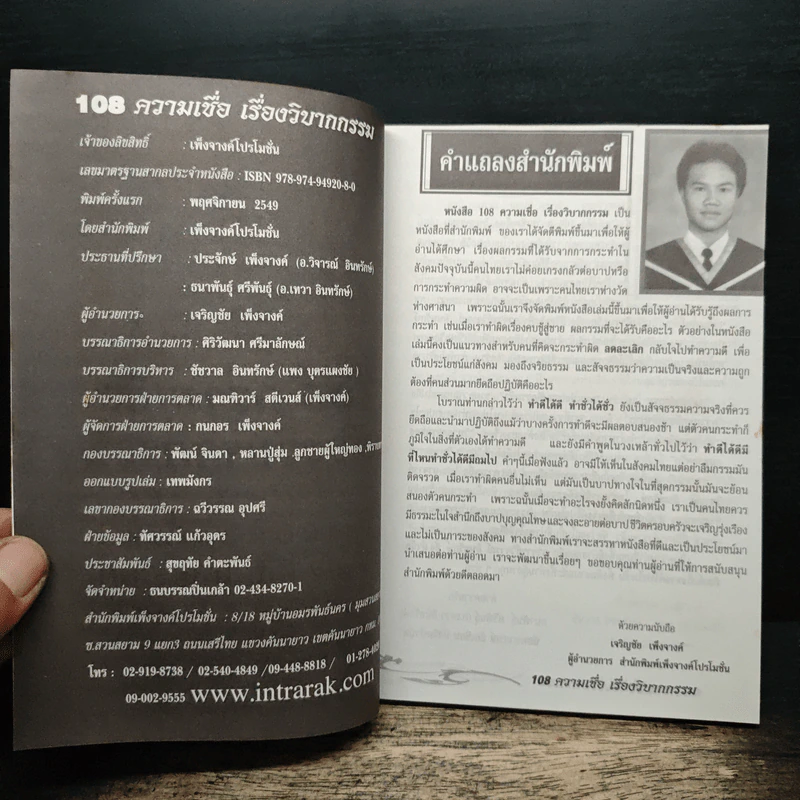 108 ความเชื่อ เรื่องวิบากกรรม
เจ้าของลิขสิทธิ์ : เพ็งจางค์โปรโมชั่น
เลขมาตรฐานสากลประจำหนังสือ : ISBN 978-974-94920-8-0
พิมพ์ครั้งแรก : พฤศจิกายน 2549
โดยสำนักพิมพ์ : เพ็งจางค์โปรโมชั่น
ประธานที่ปรึกษา : ประจักษ์ เพ็งจางค์ (อ.วิจารณ์ อินทรักษ์)
: ธนาพันธุ์ ศรีพันธุ์ (อ.เทวา อินทรักษ์)
ผู้อำนวยการ : เจริญชัย เพ็งจางค์
บรรณาธิการอำนวยการ : ศิริวัฒนา ศรีมาลักษณ์
บรรณาธิการบริหาร : ชัชวาล อินทรักษ์ (แพง บุตรแผงชัย )
ผู้อำนวยการฝ่ายการตลาด : มณฑิวาร์ สตีเวนส์ (เพ็งจางค์)
ผู้จัดการฝ่ายการตลาด : กนกอร เพ็งจางค์
กองบรรณาธิการ : พัฒน์ จินดา , หลานปู่สุ่ม ,ลูกชายผู้ใหญ่ทอง
ออกแบบรูปเล่ม : เทพมังกร
เลขากองบรรณาธิการ : ฉวีวรรณ อุปศรี
ฝ่ายข้อมูล : ทัศวรรณ์ แก้วอุดร
ประชาสัมพันธ์ : สุขฤทัย คำตะพันธ์
จัดจำหน่าย : ธนบรรณปิ่นเกล้า 02-434-8270-1
สำนักพิมพ์เพ็งจางค์โปรโมชั่น : 8/18 หมู่บ้านอมรพันธ์นคร
ซ.สวนสยาม 9 แยก3 ถนนเสรีไทย แขวงคันนายาว เขตคันนายาว กทม.
โทร : 02-919-8738 / 02-540-4849 /09-448-8818 /
09-002-9555 www.intrarak.com
คำแถลงสำนักพิมพ์
หนังสือ 108 ความเชื่อ เรื่องวิบากกรรม เป็น
หนังสือที่สำนักพิมพ์ ของเราได้จัดตีพิมพ์ขึ้นมาเพื่อให้ผู้
อ่านได้ศึกษา เรื่องผลกรรมที่ได้รับจากการกระทำใน
สังคมปัจจุบันนี้คนไทยเราไม่ค่อยเกรงกลัวต่อบาปหรือ
การกระทำความผิด อาจจะเป็นเพราะคนไทยเราห่างวัด
ห่างศาสนา เพราะฉนั้นเราจึงจัดพิมพ์หนังสือเล่มนี้ขึ้นมาเพื่อให้ผู้อ่านได้รับรู้ถึงผลการ
กระทำ เช่นเมื่อเราทำผิดเรื่องคบชู้สู่ชาย ผลกรรมที่จะได้รับคืออะไร ตัวอย่างในหนังสือ
เล่มนี้คงเป็นแนวทางสำหรับคนที่คิดจะกระทำผิด ลดละเลิก กลับใจไปทำความดี เพื่อ
เป็นประโยชน์แก่สังคม มองถึงจริยธรรม และสัจธรรมว่าความเป็นจริงและความถูก
ต้องที่คนส่วนมากยึดถือปฏิบัติคืออะไร
โบราณท่านกล่าวไว้ว่า ทำดีได้ดี ทำชั่วได้ชั่ว ยังเป็นสัจธรรมความจริงที่ควร
ยึดถือและนำมาปฏิบัติถึงแม้ว่าบางครั้งการทำดีจะมีผลตอบสนองช้า แต่ตัวคนกระทำก็
ภูมิใจในสิ่งที่ตัวเองได้ทำความดี และยังมีคำพูดในวงเหล้าทั่วไปไว้ว่า ทำดีได้ดีมี
ที่ไหนทำชั่วได้ดีมีถมไป คำๆนี้เมื่อฟังแล้ว อาจมีให้เห็นในสังคมไทยแต่อย่าลืมกรรมมัน
ติดจรวด เมื่อเราทำผิดคนอื่นไม่เห็น แต่มันเป็นบาปทางใจในที่สุดกรรมนั้นมันจะย้อน
สนองตัวคนกระทำ เพราะฉนั้นเมื่อจะทำอะไรจงยั้งคิดสักนิดหนึ่ง เราเป็นคนไทยควร
มีธรรมะในใจสำนึกถึงบาปบุญคุณโทษและจงละอายต่อบาป ชีวิตครอบครัวจะเจริญรุ่งเรือง
และไม่เป็นภาระของสังคม ทางสำนักพิมพ์เราจะสรรหาหนังสือที่ดีและเป็นประโยชน์มา
นำเสนอต่อท่านผู้อ่าน เราจะพัฒนาขึ้นเรื่อยๆ ขอขอบคุณท่านผู้อ่านที่ให้การสนับสนุน
สำนักพิมพ์ด้วยดีตลอดมา
ด้วยความนับถือ
เจริญชัย เพ็งจางค์
ผู้อำนวยการ สำนักพิมพ์เพ็งจางค์โปรโมชั่น
108 ความเชื่อ เรื่องวิบากกรรม